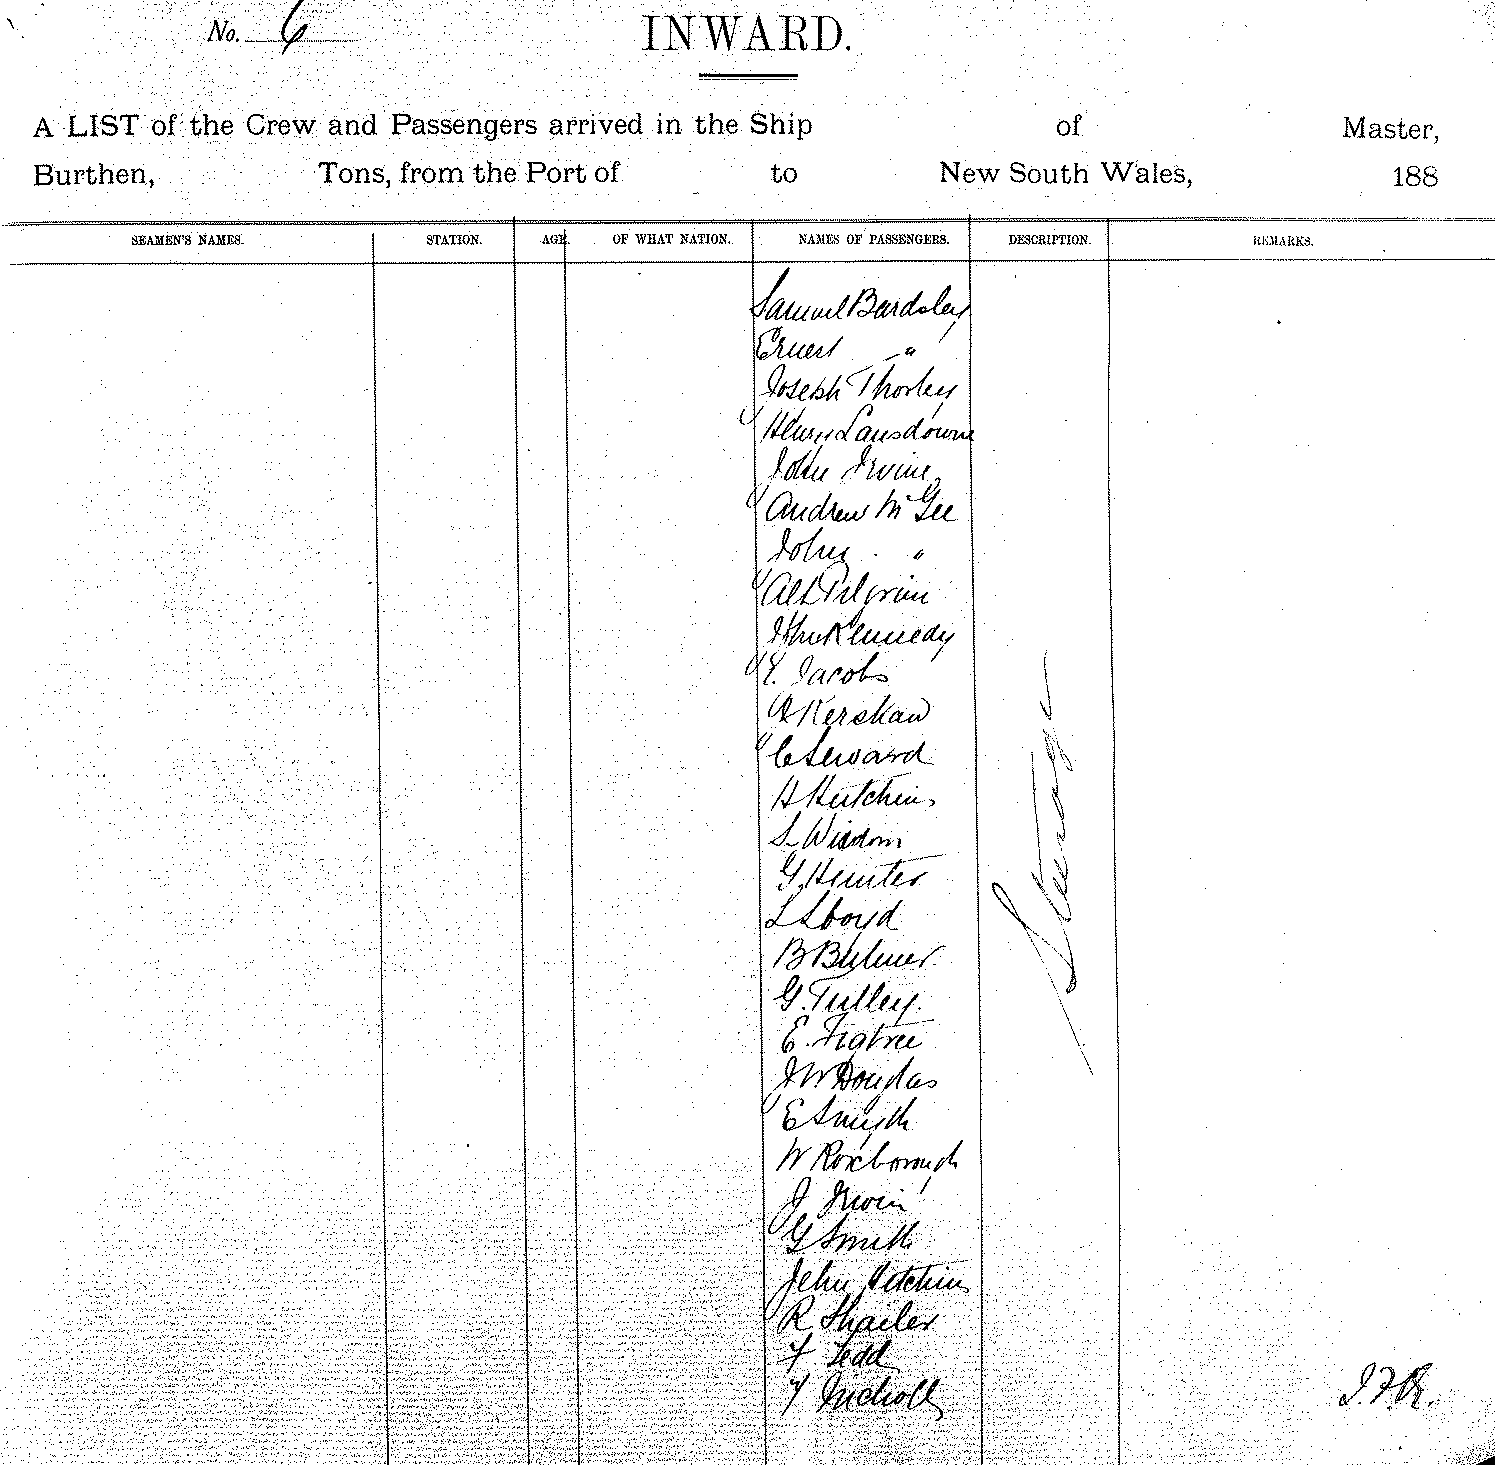 No. 6
INWARD.
A LIST of the Crew and Passengers arrived in the Ship of Master,
Burthen, Tons, from the Port of to New South Wales, 188
SEAMEN'S NAMES. STATION. AGE. OF WHAT NATION. NAMES OF PASSENGERS. DESCRIPTION. REMARKS.
Samuel Bardsley
Ernest "
Joseph Thorley
Henry Lansdowne
John Irvine
Andrew McGee
John "
Alb Pilgrim
John Kennedy
Jacobs
A Kershaw
C Seward
H Hutchins
S Wisdom
G Hunter
L Lloyd
B Bulmer
G. Tulley
E. Figtree
J W Douglas
E Smyth
W Roxborough
J Irwin
G Smith
John Hitchins
R Shailer
F Ledd
F Nicholl
Steerage